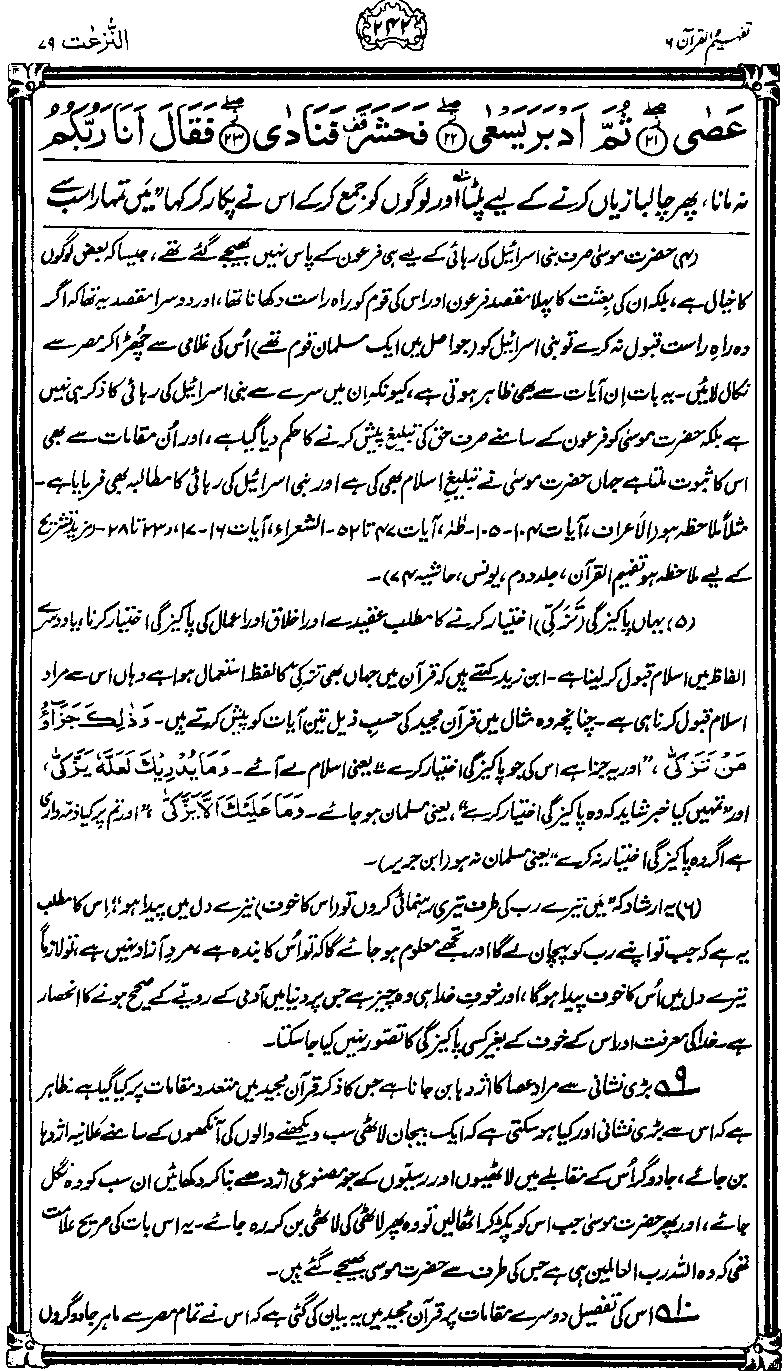 تفہیم القرآن ۶
۲۴۲
النّٰزعٰت ۷۹
عَصٰى ﴿۲۱﴾ ثُمَّ اَدْبَرَ يَسْعٰى ﴿۲۲﴾ فَحَشَرَ فَنَادٰى ﴿۲۳﴾ فَقَالَ اَنَا رَبُّكُمُ
نہ مانا، پھر چالبازیاں کرنے کے لیے پلٹا اور لوگوں کو جمع کر کے اس نے پکار کر کہا ”میں تمہارا سب سے
(۴) حضرت موسیٰ صرف بنی اسرائیل کی رہائی کے لیے ہی فرعون کے پاس نہیں بھیجے گئے تھے، جیسا کہ بعض لوگوں
کا خیال ہے، بلکہ ان کی بعثت کا پہلا مقصد فرعون اور اس کی قوم کو راہ راست دکھانا تھا، اور دوسرا مقصد یہ تھا کہ اگر
وہ راہ راست قبول نہ کرے تو بنی اسرائیل کو (جو اصل میں ایک مسلمان قوم تھے) اُس کی غلامی سے چھڑا کر مصر سے
نکال لائیں۔ یہ بات اِن آیات سے بھی ظاہر ہوتی ہے، کیونکہ ان میں سرے سے بنی اسرائیل کی رہائی کا ذکر ہی نہیں
ہے بلکہ حضرت موسیٰ کو فرعون کے سامنے صرف حق کی تبلیغ پیش کرنے کا حکم دیا گیا ہے، اور اُن مقامات سے بھی
اس کا ثبوت ملتا ہے جہاں حضرت موسیٰ نے تبلیغِ اسلام بھی کی ہے اور بنی اسرائیل کی رہائی کا مطالبہ بھی فرمایا ہے۔
مثلاً ملاحظہ ہو (الاعراف، آیات ۱۰۴-۱۰۵۔ طٰہٰ، آیات ۴۷ تا ۵۲۔ الشعراء، آیات ۱۶-۱۷، و ۲۳ تا ۲۸۔ (مزید تشریح
کے لیے ملاحظہ ہو تفہیم القرآن، جلد دوم، یونس، حاشیہ ۷۴)۔
(۵) یہاں پاکیزگی (تزکی) اختیار کرنے کا مطلب عقیدے اور اخلاق اور اعمال کی پاکیزگی اختیار کرنا، یا دوسرے
الفاظ میں اسلام قبول کر لینا ہے۔ ابن زید کہتے ہیں کہ قرآن میں جہاں بھی تزکی کا لفظ استعمال ہوا ہے وہاں اس سے مراد
اسلام قبول کرنا ہی ہے۔ چنانچہ وہ مثال میں قرآن مجید کی حسبِ ذیل تین آیات کو پیش کرتے ہیں۔ وَذٰلِكَ جَزَآؤُ
مَنْ تَزَكّٰى، ”اور یہ جزا ہے اس کی جو پاکیزگی اختیار کرے“ یعنی اسلام لے آئے۔ وَمَا يُدْرِيْكَ لَعَلَّهٗ يَزَّكّٰى،
اور ”تمہیں کیا خبر شاید کہ وہ پاکیزگی اختیار کرے“، یعنی مسلمان ہو جائے۔ وَمَا عَلَيْكَ اَلَّا يَزَّكّٰى، ”اور تم پر کیا ذمہ داری
ہے اگر وہ پاکیزگی اختیار نہ کرے“ یعنی مسلمان نہ ہو (ابن جریر)۔
(۶) یہ ارشاد کہ ”میں تیرے رب کی طرف تیری رہنمائی کروں تو (اس کا خوف) تیرے دل میں پیدا ہو“، اِس کا مطلب
یہ ہے کہ جب تو اپنے رب کو پہچان لے گا اور تجھے معلوم ہو جائے گا کہ تو اُس کا بندہ ہے، مردِ آزاد نہیں ہے، تو لازماً
تیرے دل میں اُس کا خوف پیدا ہو گا، اور خوفِ خدا ہی وہ چیز ہے جس پر دنیا میں آدمی کے رویّے کے صحیح ہونے کا انحصار
ہے۔ خدا کی معرفت اور اس کے خوف کے بغیر کسی پاکیزگی کا تصور نہیں کیا جا سکتا۔
۹؎ بڑی نشانی سے مراد عصا کا اژدہا بن جانا ہے جس کا ذکر قرآن مجید میں متعدد مقامات پر کیا گیا ہے۔ ظاہر
ہے کہ اس سے بڑی نشانی اور کیا ہو سکتی ہے کہ ایک بیجان لاٹھی سب دیکھنے والوں کی آنکھوں کے سامنے علانیہ اژدہا
بن جائے، جادوگر اُس کے مقابلے میں لاٹھیوں اور رسیوں کے جو مصنوعی اژدہے بنا کر دکھائیں ان سب کو وہ نگل
جائے، اور پھر حضرت موسیٰ جب اس کو پکڑ کر اٹھا لیں تو وہ پھر لاٹھی کی لاٹھی بن کر رہ جائے۔ یہ اس بات کی صریح علامت
تھی کہ وہ اللہ رب العالمین ہی ہے جس کی طرف سے حضرت موسیٰ بھیجے گئے ہیں۔
۱۰؎ اس کی تفصیل دوسرے مقامات پر قرآن مجید میں یہ بیان کی گئی ہے کہ اس نے تمام مصر سے ماہر جادوگروں